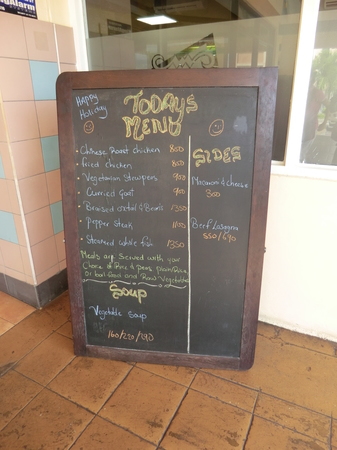 Alarm
Happy
Holiday
TODAYS
MENU
Chinese Roast chicken 800
fried chicken 800
Vegetarian Strumpers 900
Curried Goat 900
Braised oxtail & Beans 1350
Pepper Steak 1100
Steamed white fish 1350
Meals are Served with your
Choice of Rice & Peas, plain Rice
Or boil food and Raw Vegetables
Soup
Vegetable Soup
160/250/390
SIDES
Macaroni & cheese
300
Beef Lasagna
550/690